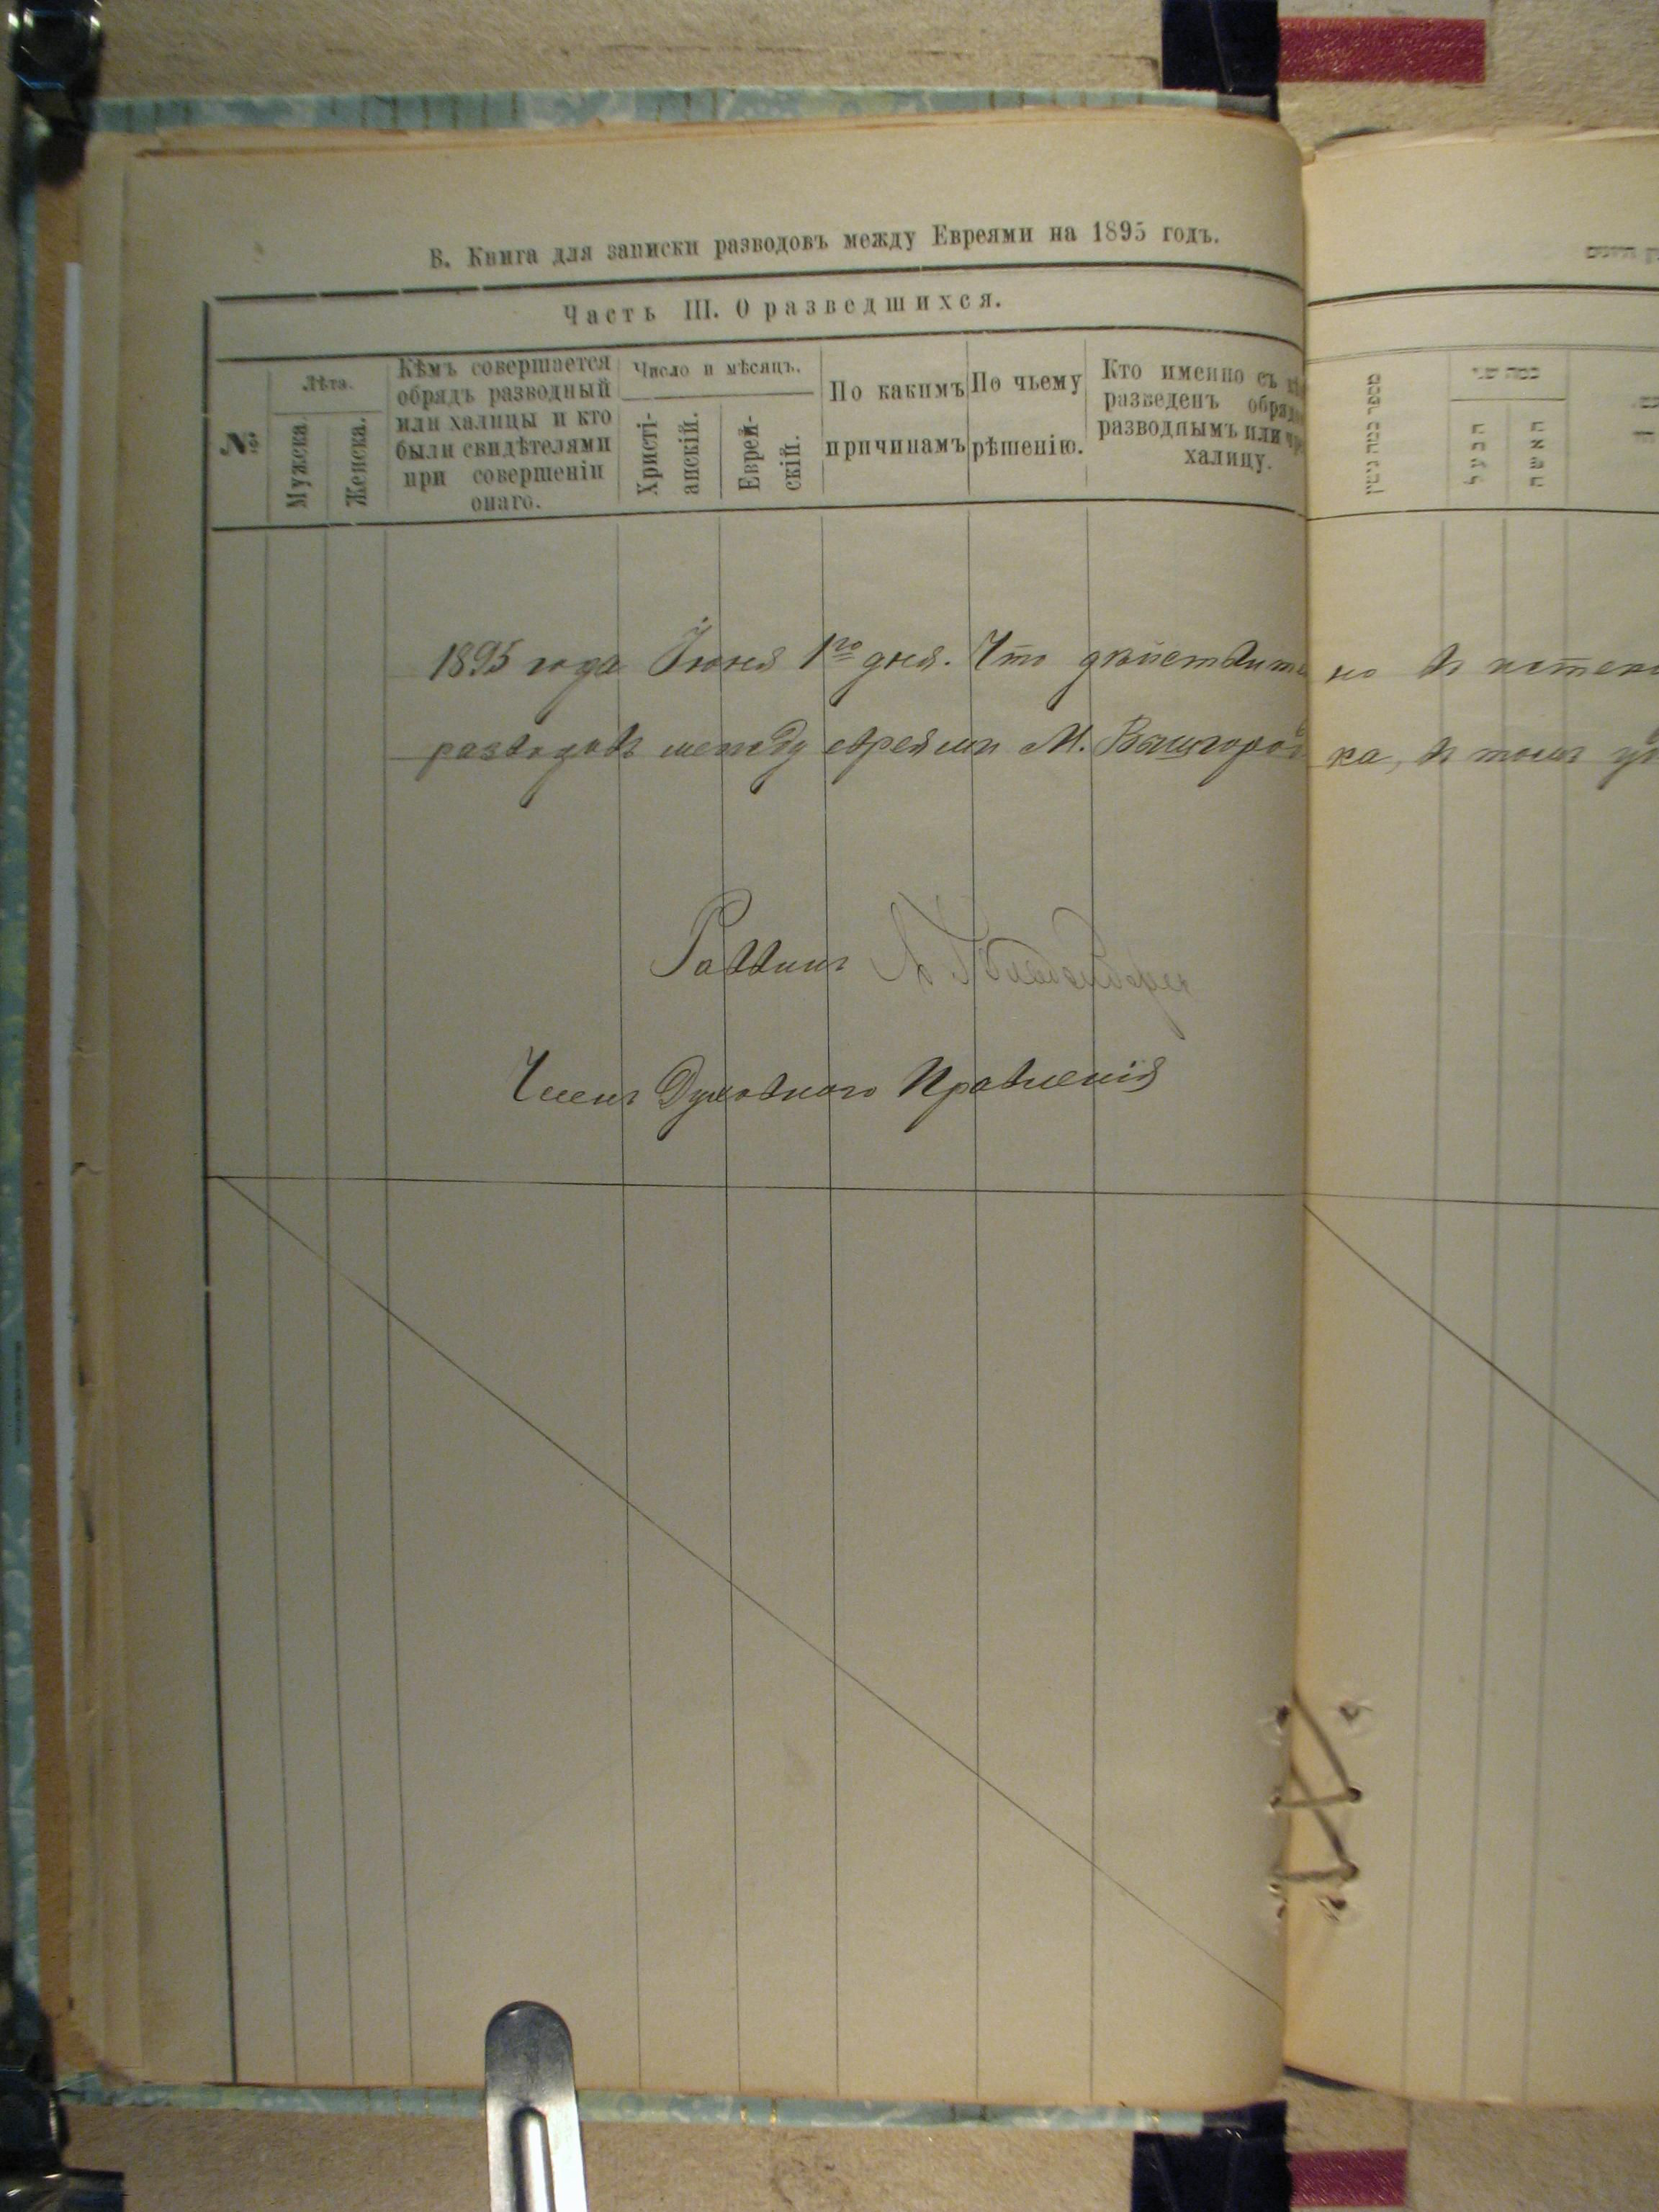 В. Книга для записки разводовъ между Евреями на 1895 годъ.
Часть III. О разведшихся.
№
Лѣта.
Мужска.
Женска.
Кѣмъ совершается
обрядъ разводный
или халицы и кто
были свидѣтелями
при совершеніи
онаго.
Число и мѣсяцъ.
Христі-
анскій.
Еврей-
скій.
По какимъ
причинамъ
По чьему
рѣшенію.
Кто именно съ
разведенъ
разводнымъ или
халицу.
מספר כמה גיטין
כמה שני
הבעל
האשה
1895 года Іюня 1го дня. Что дѣйствите
но въ
разводовъ между евреями М. Вышгород
ка, въ томъ
Раввинъ
Членъ Духовнаго Правленія